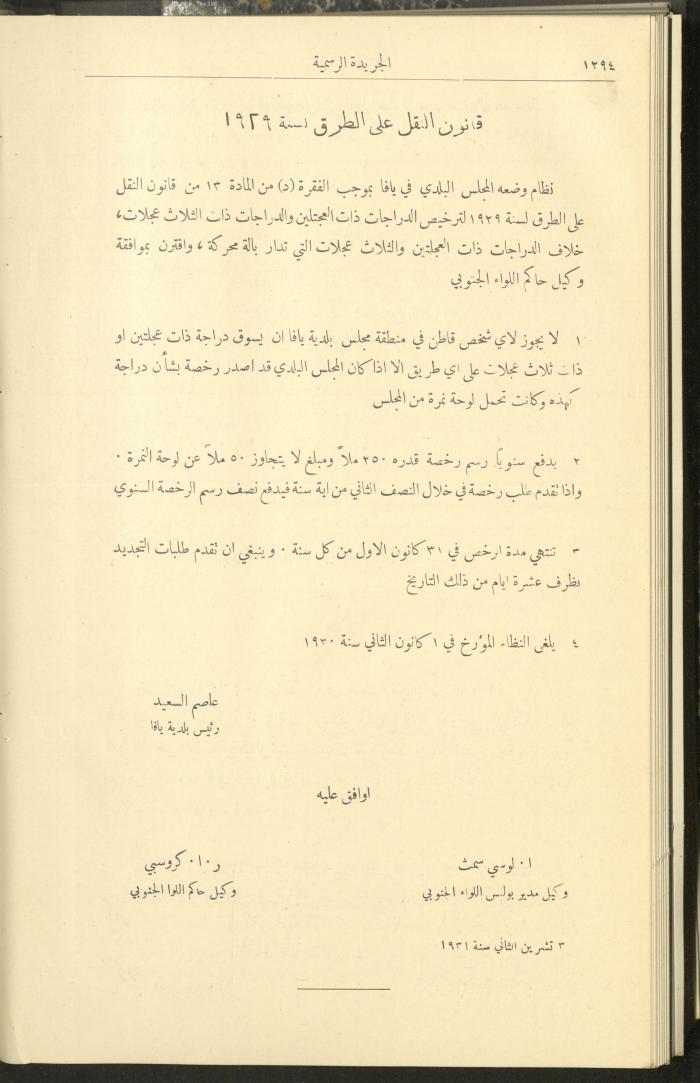 ١٢٩٤
الجريدة الرسمية
قانون النقل على الطرق لسنة ١٩٢٩
نظام وضعه المجلس البلدي في يافا بموجب الفقرة (د) من المادة ١٣ من قانون النقل
على الطرق لسنة ١٩٢٩ لترخيص الدراجات ذات العجلتين والدراجات ذات الثلاث عجلات،
خلاف الدراجات ذات العجلتين والثلاث عجلات التي تدار بالة محركة، واقترن بموافقة
وكيل حاكم اللواء الجنوبي
١ لا يجوز لاي شخص قاطن في منطقة مجلس بلدية يافا ان يسوق دراجة ذات عجلتين او
ذات ثلاث عجلات على اي طريق الا اذا كان المجلس البلدي قد اصدر رخصة بشأن دراجة
كهذه وكانت تحمل لوحة نمرة من المجلس
٢ يدفع سنوياً رسم رخصة قدره ٢٥٠ ملاً ومبلغ لا يتجاوز ٥٠ ملاً عن لوحة النمرة ٠
واذا تقدم طلب رخصة في خلال النصف الثاني من اية سنة فيدفع نصف رسم الرخصة السنوي
٣ تنتهي مدة الرخص في ٣١ كانون الاول من كل سنة ٠ وينبغي ان تقدم طلبات التجديد
بظرف عشرة ايام من ذلك التاريخ
٤ يلغى النظام المؤرخ في ١ كانون الثاني سنة ١٩٣٠
عاصم السعيد
رئيس بلدية يافا
اوافق عليه
ا ٠ لوسي سمث
وكيل مدير بوليس اللواء الجنوبي
٣ تشرين الثاني سنة ١٩٣١
ر ٠ ا ٠ كروسبي
وكيل حاكم اللوا الجنوبي